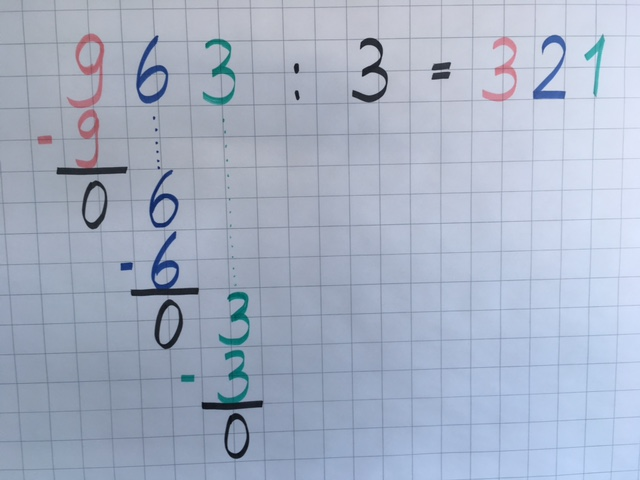 963 : 3 = 321
- 9
0 6
- 6
0 3
- 3
0